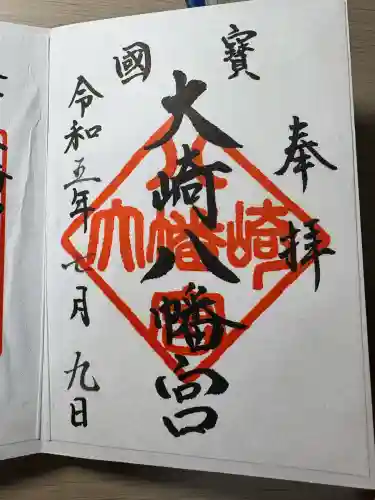 國寶
奉拝
大崎八幡宮
令和五年七月九日